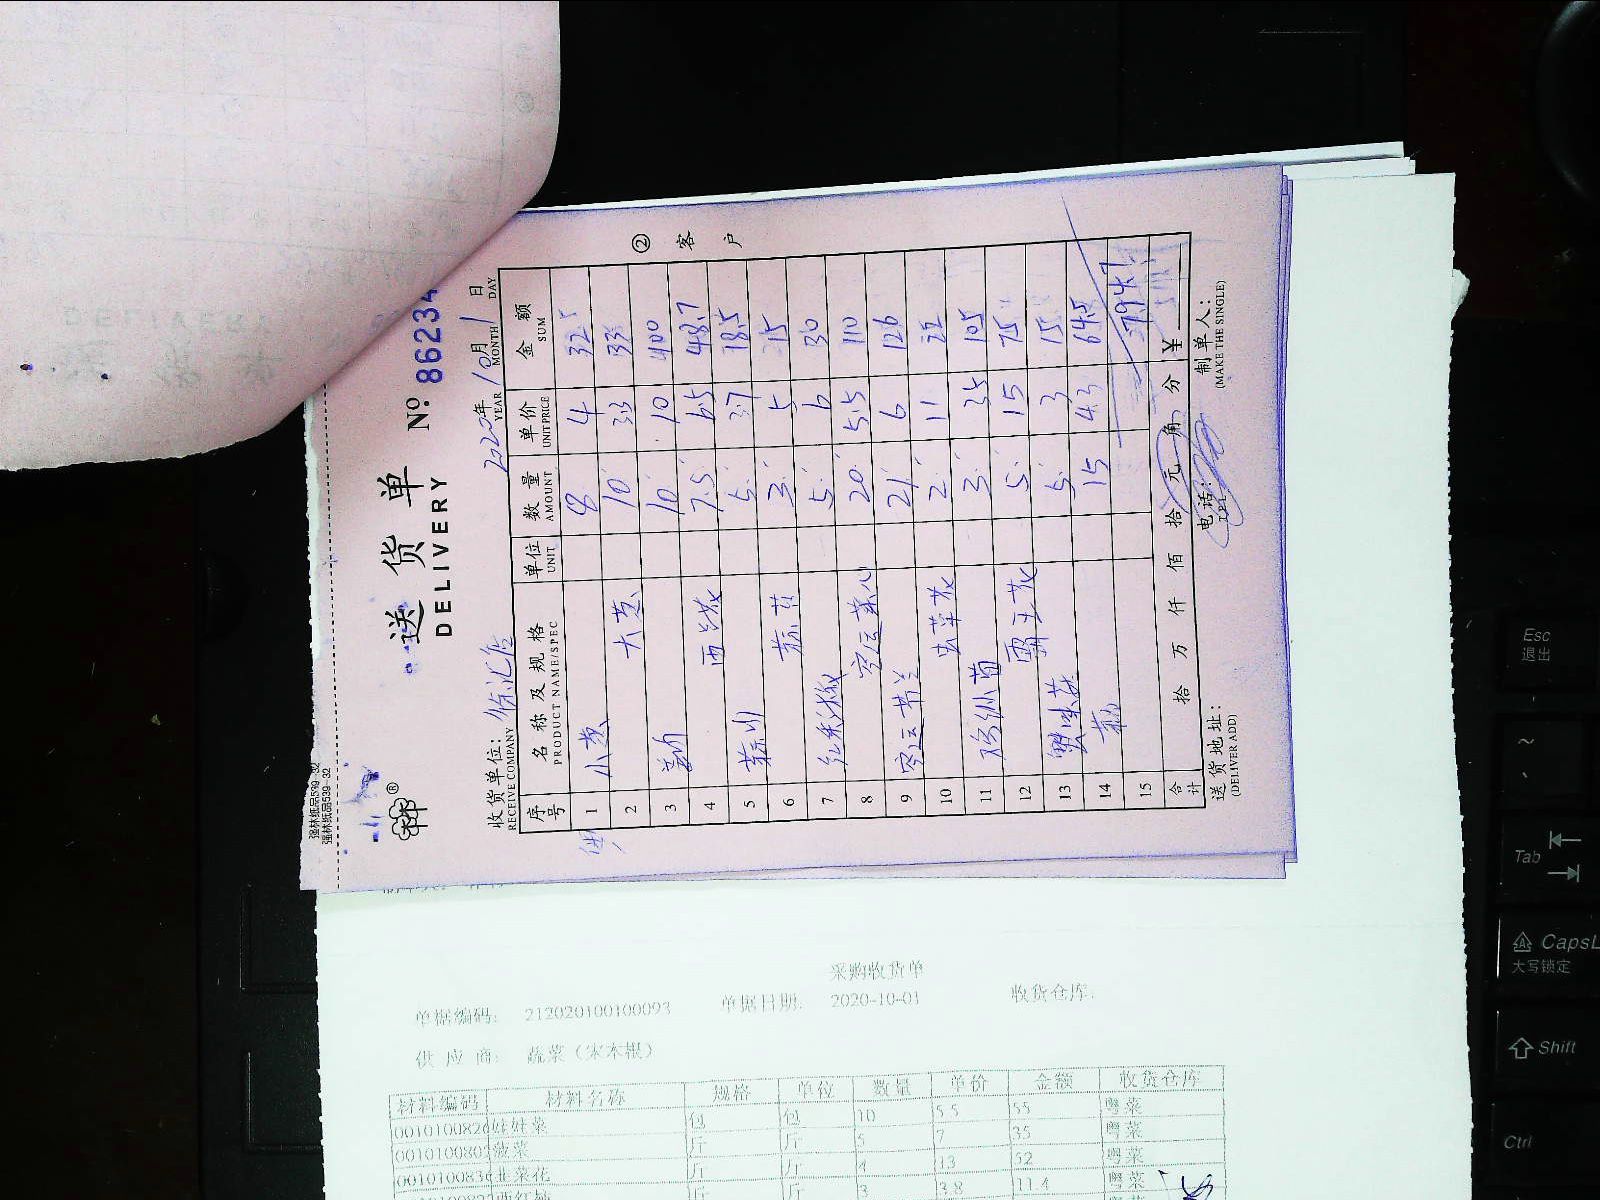 强林纸品539-32
强林纸品539-32
送货单
DELIVERY
№ 86234
收货单位: 徐汇店 2020年10月1日
RECEIVE COMPANY YEAR MONTH DAY
序号 名称及规格 单位 数量 单价 金额
PRODUCT NAME/SPEC UNIT AMOUNT UNIT PRICE SUM
1 小葱 8 4 32
2 大葱 10 3.3 33
3 10 10 100
4 西兰花 7.5 6.5 48.7
5 5 3.7 18.5
6 3 5 15
7 红彩椒 5 6 30
8 空运菜心 20 5.5 110
9 空运芥兰 21 6 126
10 虫草花 2 11 22
11 鸡纵菌 3 35 105
12 霸王花 5 15 75
13 蟹味菇 5 3 15
14 15 4.3 64.5
15
794.7
合计 拾 万 仟 佰 拾 元 角 分 ¥
送货地址: 电话: 制单人:
(DELIVER ADD) TEL (MAKE THE SINGLE)
② 客户
采购收货单
单据编码: 212020100100093 单据日期: 2020-10-01 收货仓库:
供应商: 蔬菜(宋本根)
材料编码 材料名称 规格 单位 数量 单价 金额 收货仓库
001010082 娃娃菜 包 包 10 5.5 55 粤菜
001010080 菠菜 斤 斤 5 7 35 粤菜
001010083 韭菜花 斤 斤 4 13 52 粤菜
西红柿 斤 斤 3 3.8 11.4 粤菜
Esc
退出
~
Tab
CapsL
大写锁定
Shift
Ctrl